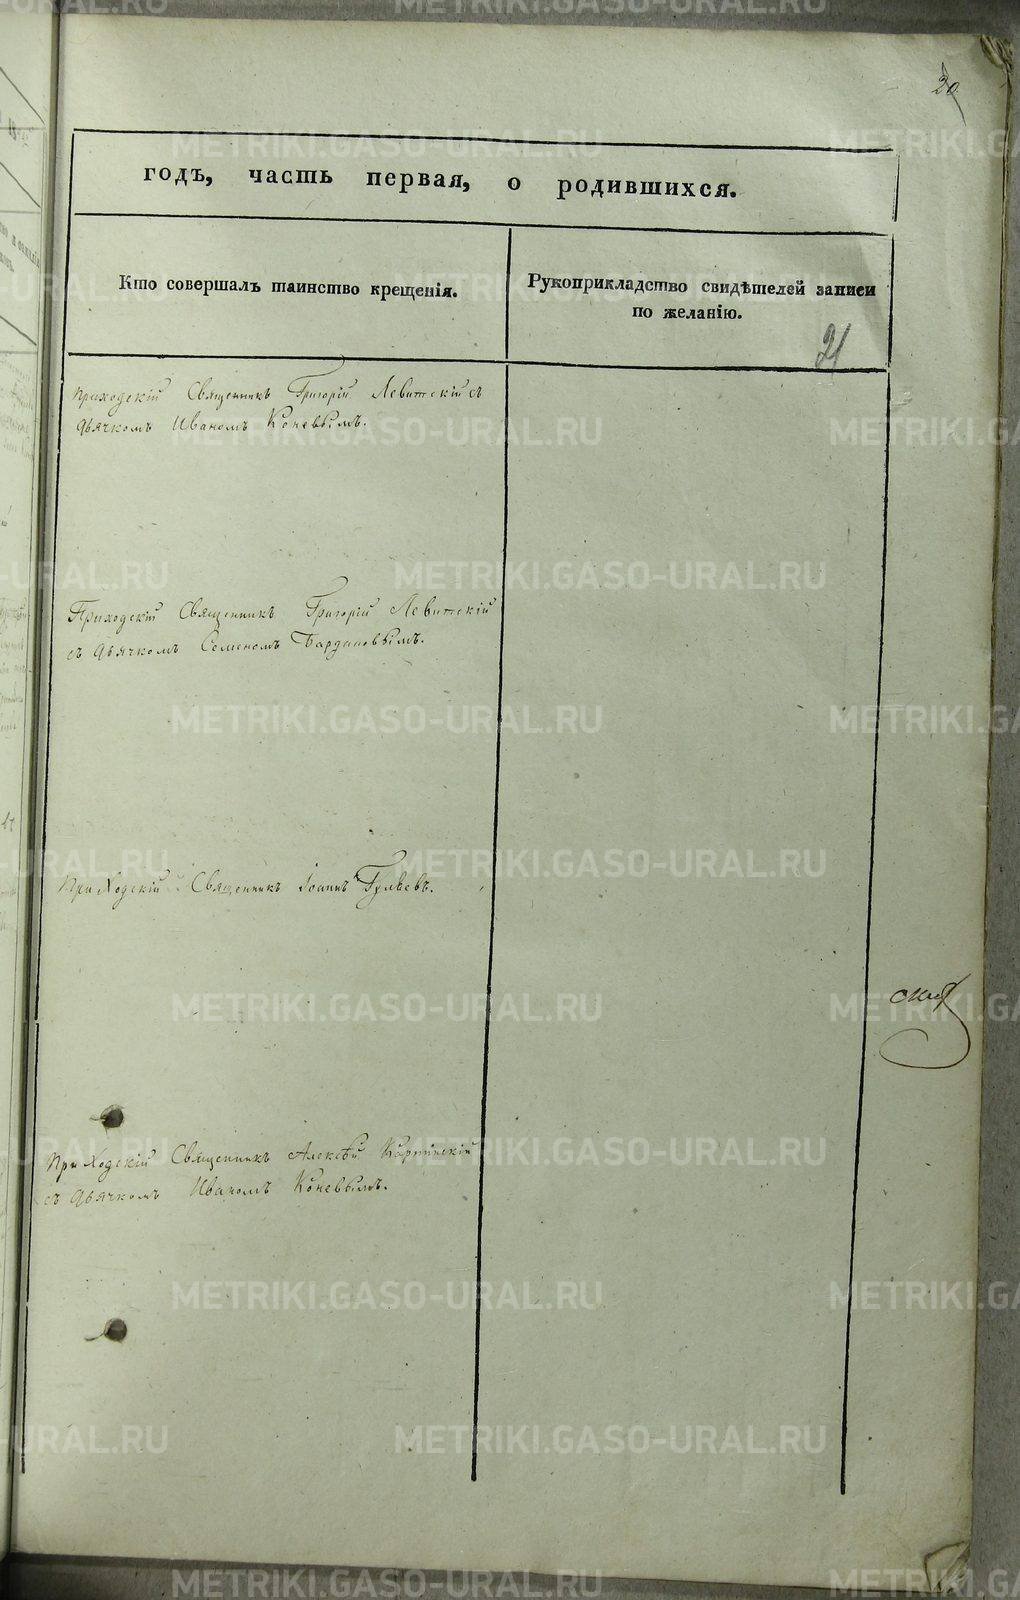 20
годъ, часть первая, о родившихся.
Кто совершалъ таинство крещенія.
Рукоприкладство свидѣтелей записи
по желанію.
21
Приходскій Священникъ Григорій Левитскій съ
дьячкомъ Иваномъ Коневымъ.
Приходскій Священникъ Григорій Левитскій
съ дьячкомъ Семеномъ
Приходскій Священникъ Іоаннъ Гуляевъ.
Приходскій Священникъ Алексѣй
съ дьячкомъ Иваномъ Коневымъ.
METRIKI.GASO-URAL.RU